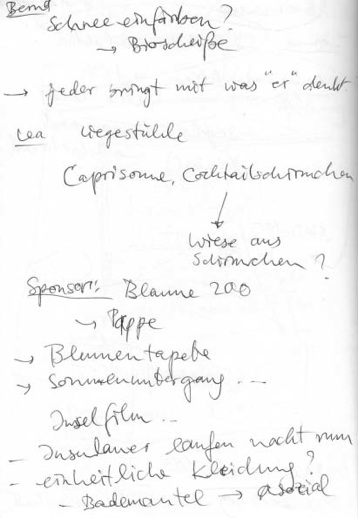 Bernd
Schnee einfärben?
→ Bioscheiße
→ jeder bringt mit was "er" denkt
Lea Liegestühle
Caprisonne, Cocktailschirmchen
↓
Wiese aus
Schirmchen?
Sponsor: Blaume 200
→ Pappe
→ Blumentapete
→ Sonnenuntergang ...
Inselfilm ..
- Insulaner laufen nackt rum
- einheitliche Kleidung?
- Bademantel → asozial